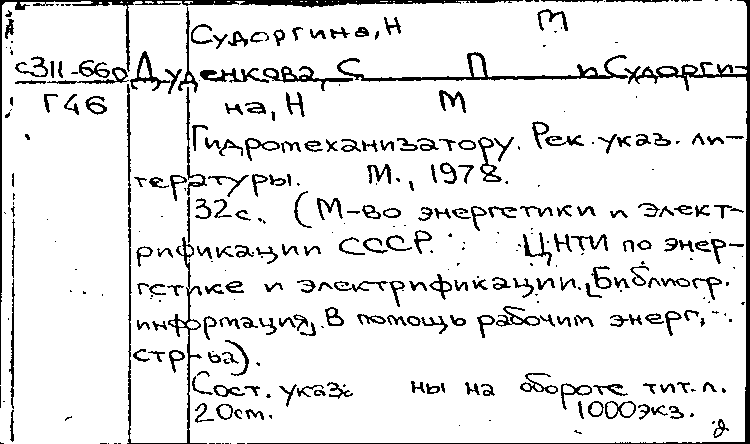 Судоргина, Н М
с311-660 Дуденкова, С П и Судорги-
Г46 на, Н М
Гидромеханизатору. Рек. указ. ли-
тературы. М., 1978.
32с. (М-во энергетики и элект-
рификации СССР. ЦНТИ по энер-
гетике и электрификации. Библиогр.
информация, В помощь рабочим энерг.
стр-ва).
Сост. указа ны на обороте тит. л.
20см. 1000экз.